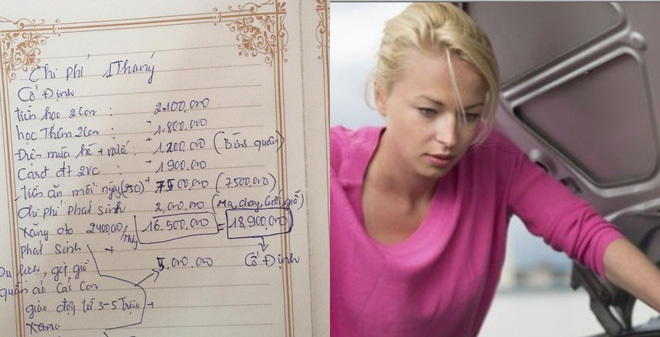 Chi phí 1 Tháng
Cố Định
tiền học 2 con : 2.100.000
học Thêm 2 Con : + 1.800.000
Điện mùa hè + : 1.200.000 (Bình quân)
Card đt 2VC : + 1.900.000
tiền ăn mỗi ngày (250) + 7500.000 (7.500.000)
Chi phí phát sinh 2.000.000 (Ma chay, Giỗ)
Xăng oto 2400.000/Thg 16.500.000 = 18.900.000
phát sinh + 5.000.000 Cố Định
Du lịch,
quần áo các con
giao động từ 3-5 Triệu +